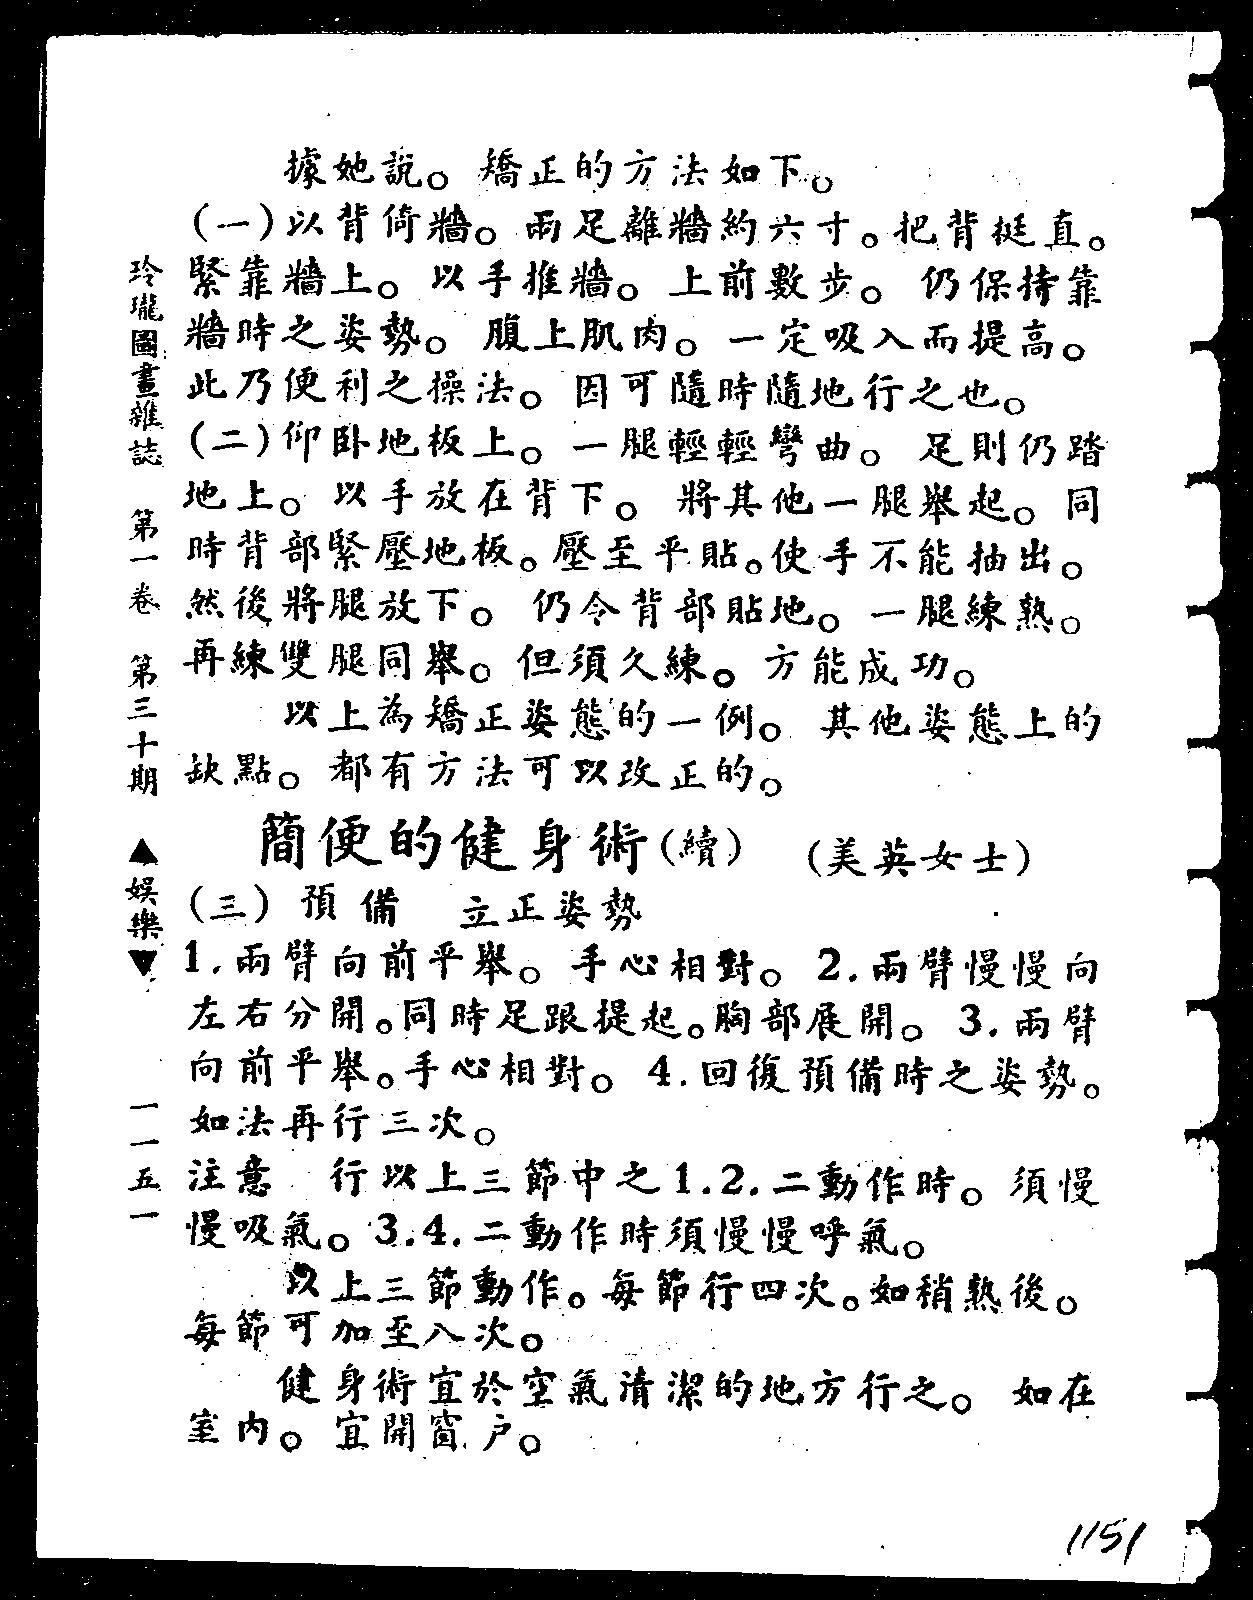 據她說。矯正的方法如下。
(一)以背倚牆。兩足離牆約六寸。把背挺直。
緊靠牆上。以手推牆。上前數步。仍保持靠
牆時之姿勢。腹上肌肉。一定吸入而提高。
此乃便利之操法。因可隨時隨地行之也。
(二)仰卧地板上。一腿輕輕彎曲。足則仍踏
地上。以手放在背下。將其他一腿舉起。同
時背部緊壓地板。壓至平貼。使手不能抽出。
然後將腿放下。仍令背部貼地。一腿練熟。
再練雙腿同舉。但須久練。方能成功。
以上為矯正姿態的一例。其他姿態上的
缺點。都有方法可以改正的。
簡便的健身術(續) (美英女士)
(三)預備 立正姿勢
1.兩臂向前平舉。手心相對。2.兩臂慢慢向
左右分開。同時足跟提起。胸部展開。3.兩臂
向前平舉。手心相對。4.回復預備時之姿勢。
如法再行三次。
注意 行以上三節中之1.2.二動作時。須慢
慢吸氣。3.4.二動作時須慢慢呼氣。
以上三節動作。每節行四次。如稍熟後。
每節可加至八次。
健身術宜於空氣清潔的地方行之。如在
室內。宜開窗户。
玲瓏圖畫雜誌 第一卷 第三十期 ▲娛樂▼ 一一五一
1151